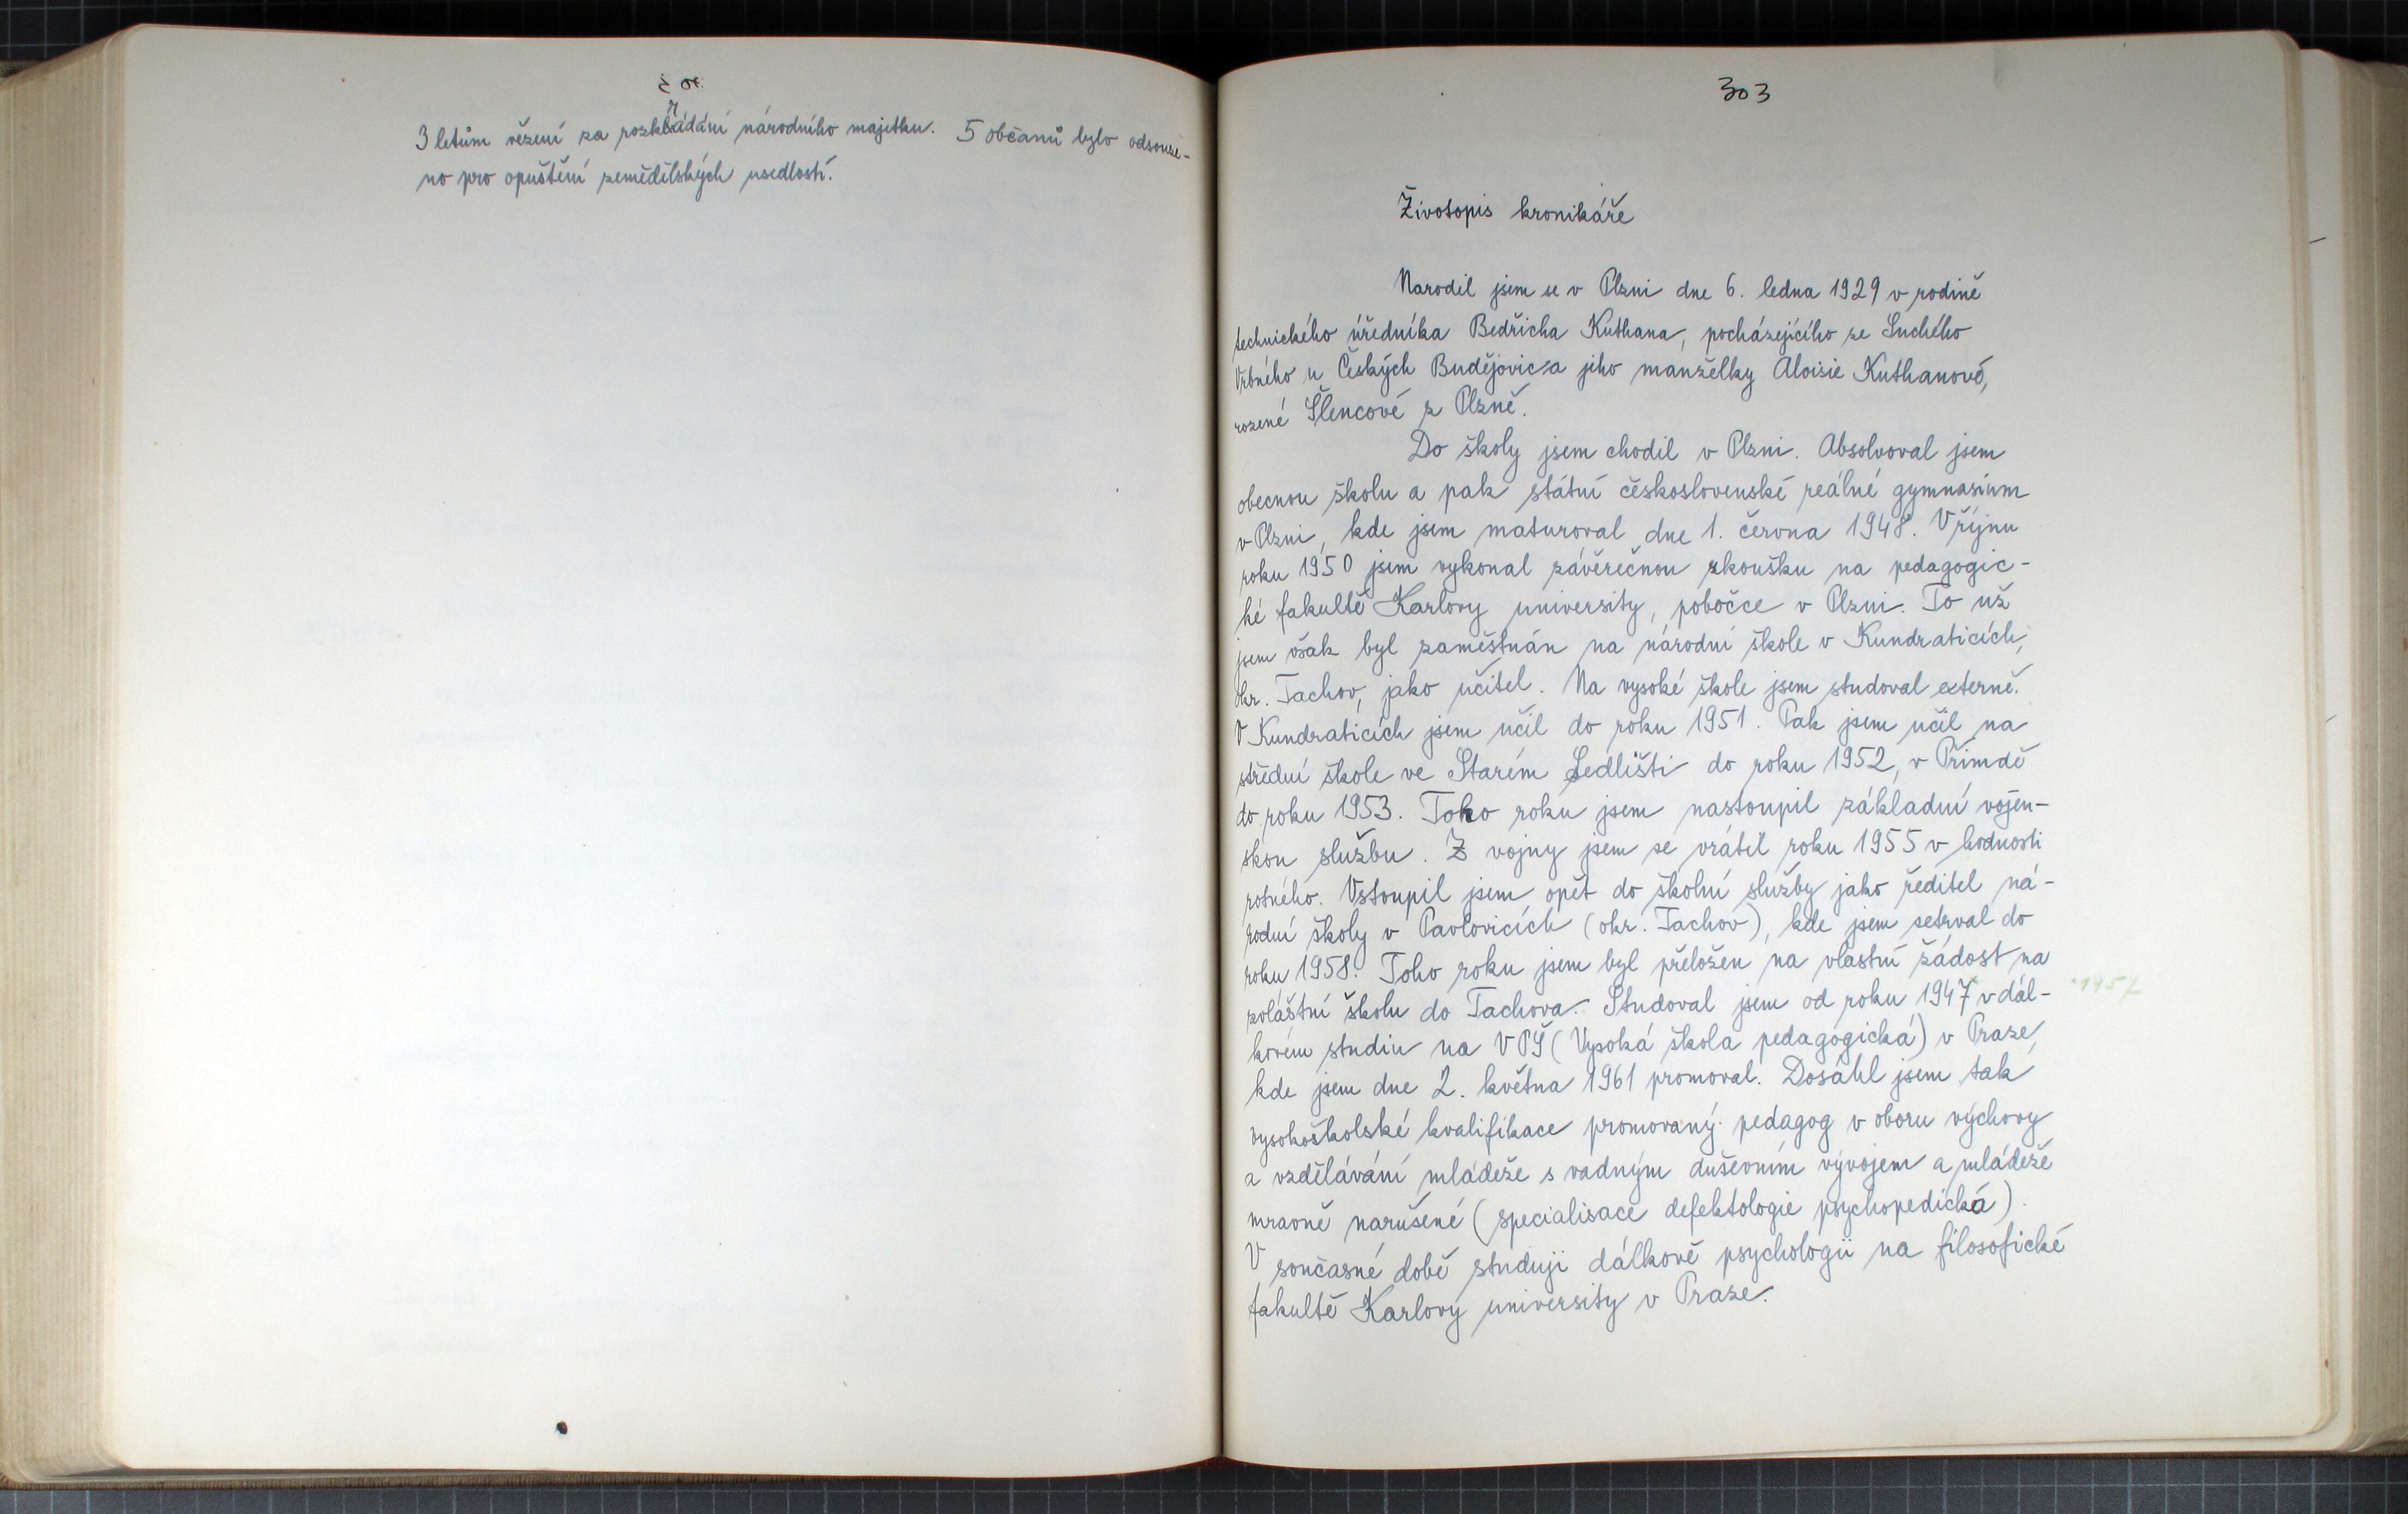 3 letům vězení za rozkrádání národního majetku. 5 občanů bylo odsouze-
no pro opuštění zemědělských usedlostí.
303
Životopis kronikáře
Narodil jsem se v Plzni dne 6. ledna 1929 v rodině
technického úředníka Bedřicha Kuthana, pocházejícího ze Suchého
Vrbného u Českých Budějovic a jeho manželky Aloisie Kuthanové,
rozené Šlencové z Plzně.
Do školy jsem chodil v Plzni. Absolvoval jsem
obecnou školu a pak státní československé reálné gymnasium
v Plzni, kde jsem maturoval dne 1. června 1948. V říjnu
roku 1950 jsem vykonal závěrečnou zkoušku na pedagogic-
ké fakultě Karlovy university, pobočce v Plzni. To už
jsem však byl zaměstnán na národní škole v Kundraticích,
okr. Tachov, jako učitel. Na vysoké škole jsem studoval externě.
V Kundraticích jsem učil do roku 1951. Pak jsem učil na
střední škole ve Starém Sedlišti do roku 1952, v Přimdě
do roku 1953. Toho roku jsem nastoupil základní vojen-
skou službu. Z vojny jsem se vrátil roku 1955 v hodnosti
rotného. Vstoupil jsem opět do školní služby jako ředitel ná-
rodní školy v Pavlovicích (okr. Tachov), kde jsem setrval do
roku 1958. Toho roku jsem byl přeložen na vlastní žádost na
zvláštní školu do Tachova. Studoval jsem od roku 1947 v dál- 1957
kovém studiu na VPŠ (Vysoká škola pedagogická) v Praze,
kde jsem dne 2. května 1961 promoval. Dosáhl jsem tak
vysokoškolské kvalifikace promovaný pedagog v oboru výchovy
a vzdělávání mládeže s vadným duševním vývojem a mládeže
mravně narušené (specialisace defektologie psychopedická).
V současné době studuji dálkově psychologii na filosofické
fakultě Karlovy university v Praze.